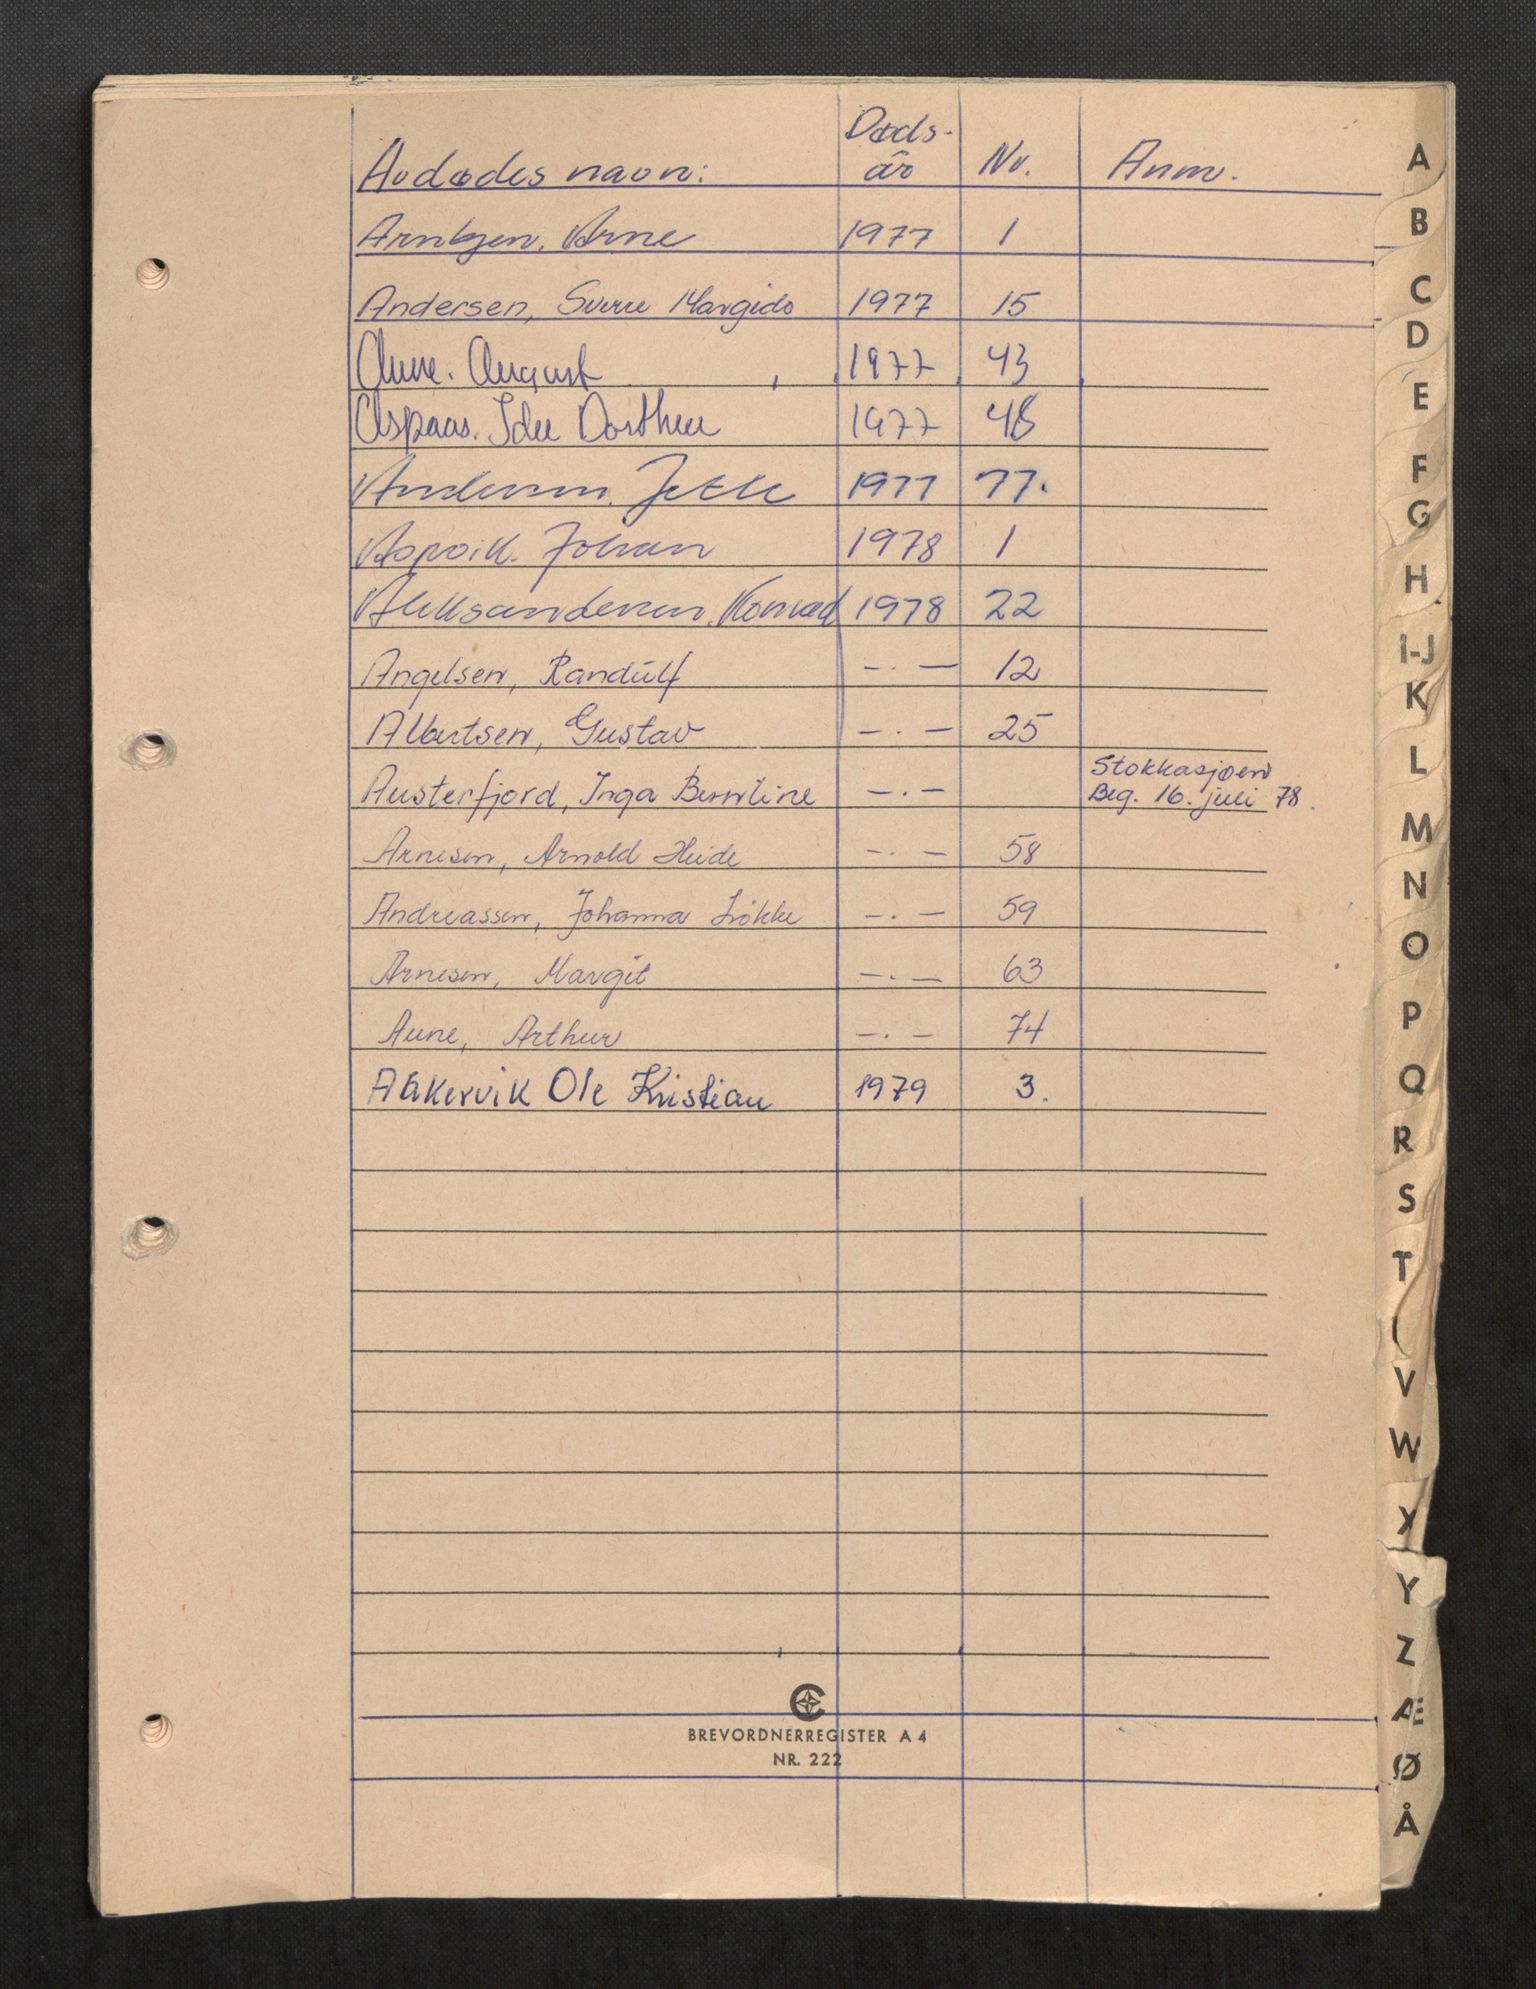 Avdødes navn: Døds-år Nr. Anm.
Arne 1977 1
Andersen, Sverre Margido 1977 15
Aune. August 1977 43
Aspaas. Ida Dorthea 1977 48
Andersen. 1977 77.
Aspvik. Johan 1978 1
Aleksandersen. Konrad 1978 22
Angelsen, Randulf —.— 12
Albertsen, Gustav —.— 25
Austerfjord, Inga Berntine —.— Stokkasjøen
Beg. 16. juli 78.
Arnesen, Arnold Heide —.— 58
Andreassen, Johanna Løkke —.— 59
Arnesen, Margit —.— 63
Aune, Arthur —.— 74
Aakervik Ole Kristian 1979 3.
BREVORDNERREGISTER A 4
NR. 222
A
B
C
D
E
F
G
H
I-J
K
L
M
N
O
P
Q
R
S
T
V
W
X
Y
Z
Æ
Ø
Å